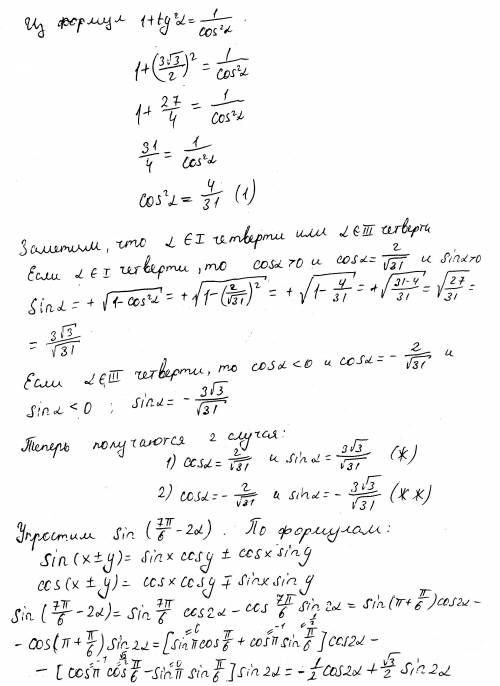 Из формул 1+tg²α = 1/cos²α
1+(3√3/2)² = 1/cos²α
1+ 27/4 = 1/cos²α
31/4 = 1/cos²α
cos²α = 4/31 (1)
Заметим, что α ∈ I четверти или α ∈ III четверти
Если α ∈ I четверти, то cosα>0 и cosα = 2/√31 и sinα>0
Sinα = + √(1-cos²α) = + √(1-(2/√31)²) = + √(1- 4/31) = +√((31-4)/31) = √(27/31) =
= 3√3/√31
Если α ∈ III четверти, то cosα < 0 и cosα = - 2/√31 и
sinα < 0 ; sinα = - 3√3/√31
Теперь получаются 2 случая:
1) cosα = 2/√31 и sinα = 3√3/√31 (*)
2) cosα = - 2/√31 и sinα = - 3√3/√31 (**)
Упростим sin (7π/6 - 2α). По формулам:
sin (x ± y) = sinx cosy ± cosx sin y
cos (x ± y) = cosx cosy ∓ sinx sin y
sin (7π/6 - 2α) = sin 7π/6 cos2α - cos 7π/6 sin 2α = sin(π + π/6) cos2α -
- cos(π + π/6) sin 2α = [sinπ cos π/6 + cosπ sin π/6] cos2α -
=0 =-1 1/2
- [cosπ cos π/6 - sinπ sin π/6] sin 2α = - 1/2 cos2α + √3/2 sin 2α
=-1 √3/2 =0